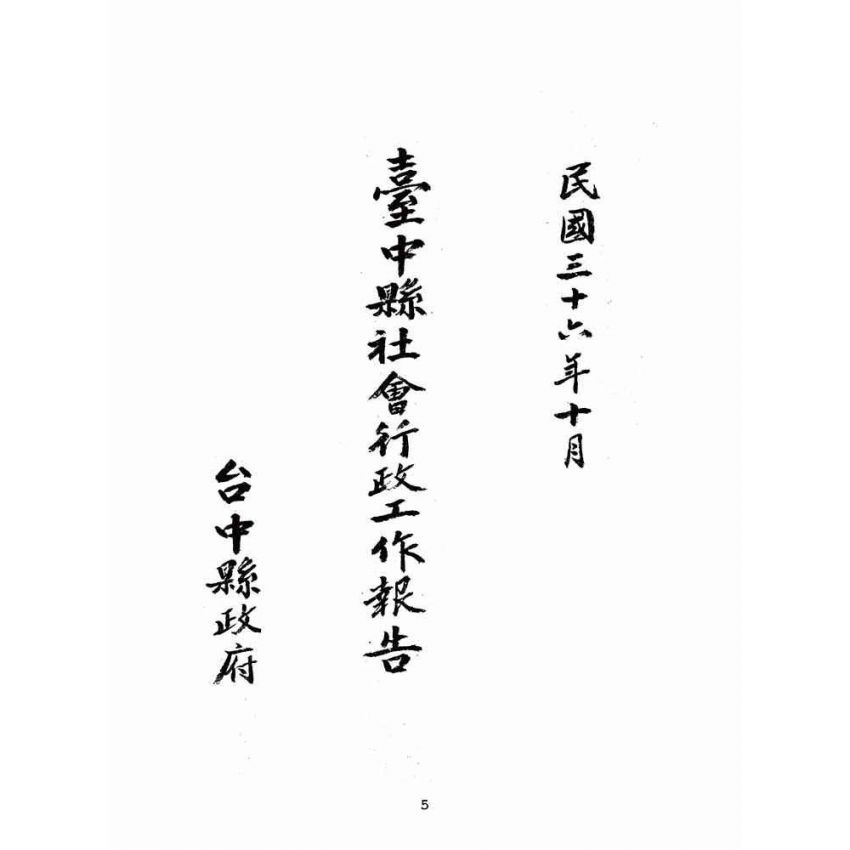 民國三十六年十月
臺中縣社會行政工作報告
台中縣政府
5